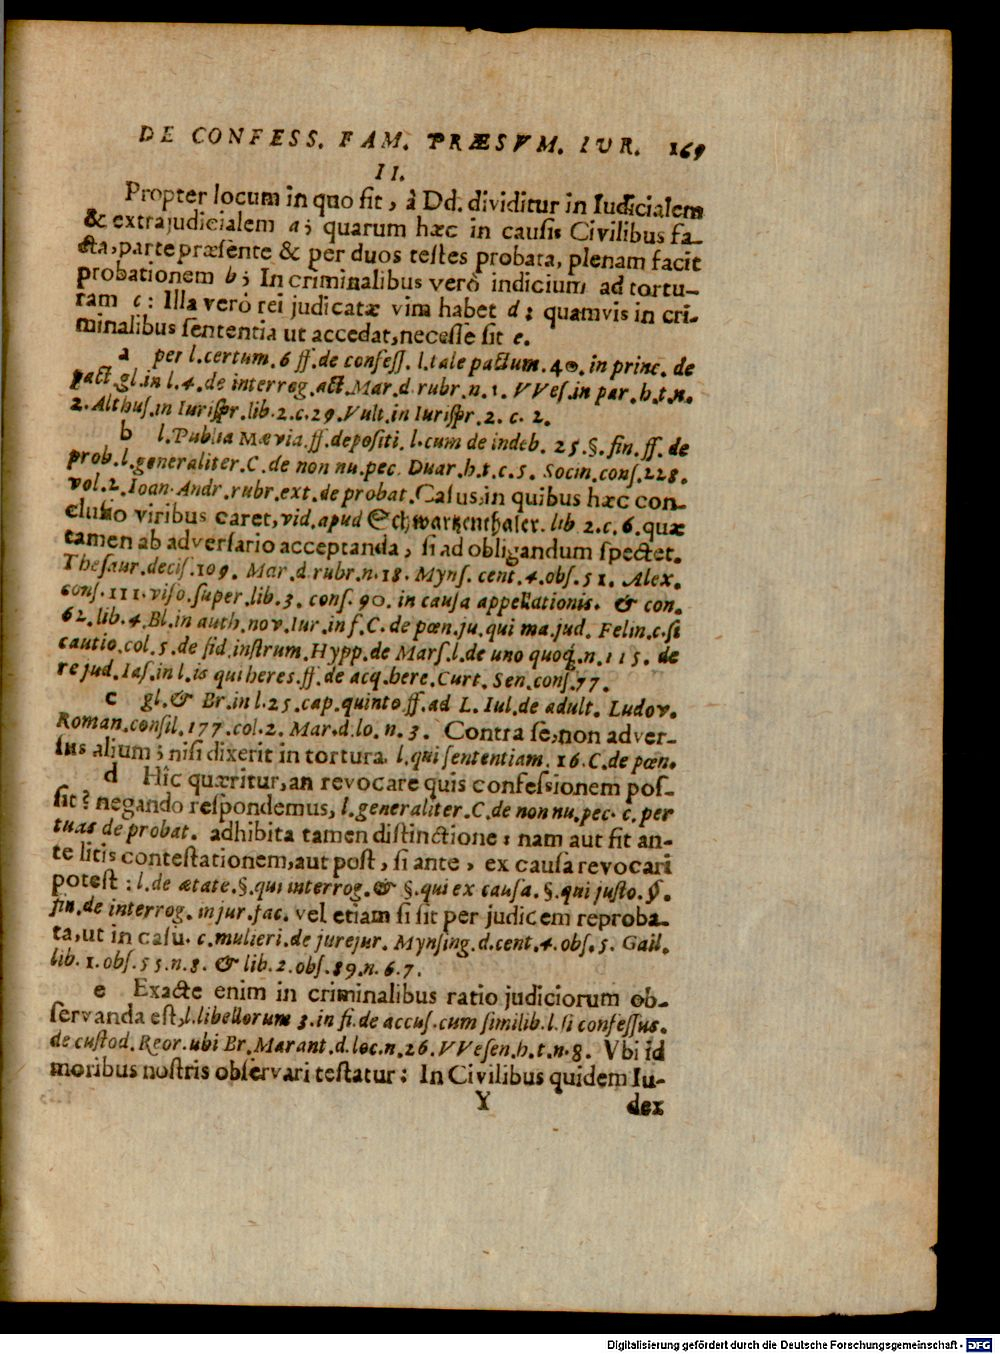 DE CONFESS. FAM. PRÆSVM. IVR. 169
II.
Propter locum in quo fit, à Dd. dividitur in Iudicialem
& extrajudicialem a; quarum hæc in causis Civilibus fa-
cta, parte præsente & per duos testes probata, plenam facit
probationem b; In criminalibus verò indicium ad tortu-
ram c: Illa verò rei judicatæ vim habet d; quamvis in cri-
minalibus sententia ut accedat, necesse sit e.
a per l. certum. 6 ff. de confess. l. tale pactum. 40. in princ. de
pact. gl. in l. 4. de interrog. act. Mar. d. rubr. n. 1. VVes. in par. h. t. n.
2. Althus. in Iurispr. lib. 2. c. 29. Vult. in Iurispr. 2. c. 2.
b l. Publia Mævia. ff. depositi. l. cum de indeb. 25. §. fin. ff. de
prob. l. generaliter. C. de non nu. pec. Duar. h. t. c. 5. Socin. cons. 228.
vol. 2. Ioan. Andr. rubr. ext. de probat. Casus, in quibus hæc con-
clusio viribus caret, vid. apud Schwartzenthaler. lib. 2. c. 6. quæ
tamen ab adversario acceptanda, si ad obligandum spectet.
Thesaur. decis. 109. Mar. d. rubr. n. 18. Myns. cent. 4. obs. 51. Alex.
cons. 111. viso. super. lib. 3. cons. 90. in causa appellationis. & con.
62. lib. 4. Bl. in auth. nov. Iur. in f. C. de pœn. ju. qui ma. jud. Felin. c. si
cautio. col. 5. de fid. instrum. Hypp. de Mars. l. de uno quoq;. n. 115. de
re jud. Ias. in l. is qui heres. ff. de acq. here. Curt. Sen. cons. 77.
c gl. & Br. in l. 25. cap. quinto. ff. ad L. Iul. de adult. Ludov.
Roman. consil. 177. col. 2. Mar. d. lo. n. 3. Contra se, non adver-
sus alium; nisi dixerit in tortura. l. qui sententiam. 16. C. de pœn.
d Hîc quæritur, an revocare quis confessionem pos-
sit? negando respondemus, l. generaliter. C. de non nu. pec. c. per
tuas de probat. adhibita tamen distinctione: nam aut fit an-
te litis contestationem, aut post, si ante, ex causa revocari
potest: l. de ætate. §. qui interrog. & §. qui ex causa. §. qui justo. §.
fin. de interrog. in jur. fac. vel etiam si sit per judicem reproba-
ta, ut in casu. c. mulieri. de jurejur. Mynsing. d. cent. 4. obs. 5. Gail.
lib. 1. obs. 55. n. 8. & lib. 2. obs. 89. n. 6. 7.
e Exacte enim in criminalibus ratio judiciorum ob-
servanda est, l. libellorum 3. in fi. de accus. cum similib. l. si confessus.
de custod. Reor. ubi Br. Marant. d. loc. n. 26. VVesen. h. t. n. 8. Vbi id
moribus nostris observari testatur: In Civilibus quidem Iu-
Y dex
Digitalisierung gefördert durch die Deutsche Forschungsgemeinschaft - DFG